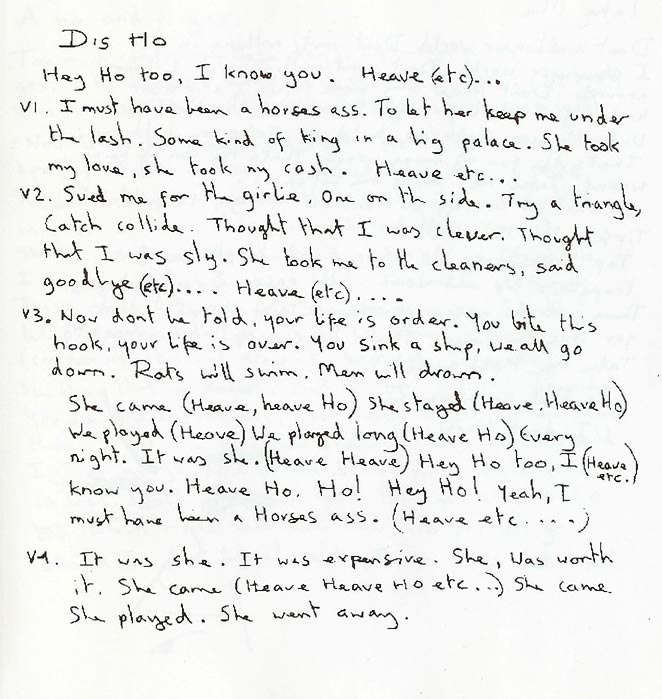 Dis Ho
Hey Ho too, I know you. Heave (etc)...
V1. I must have been a horses ass. To let her keep me under
the lash. Some kind of king in a big palace. She took
my love, she took my cash. Heave etc...
V2. Sued me for the girlie, One on th side. Try a triangle,
Catch collide. Thought that I was clever. Thought
that I was sly. She took me to the cleaners, said
goodbye (etc).... Heave (etc)....
V3. Now dont be told, your life is order. You bite this
hook, your life is over. You sink a ship, we all go
down. Rats will swim. Men will drown.
She came (Heave, heave Ho) She stayed (Heave, Heave Ho)
We played (Heave) We played long (Heave Ho) Every
night. It was she. (Heave Heave) Hey Ho too, I (Heave etc.)
know you. Heave Ho. Ho! Hey Ho! Yeah, I
must have been a Horses ass. (Heave etc....)
V4. It was she. It was expensive. She, Was worth
it. She came (Heave Heave Ho etc...) She came
She played. She went away.